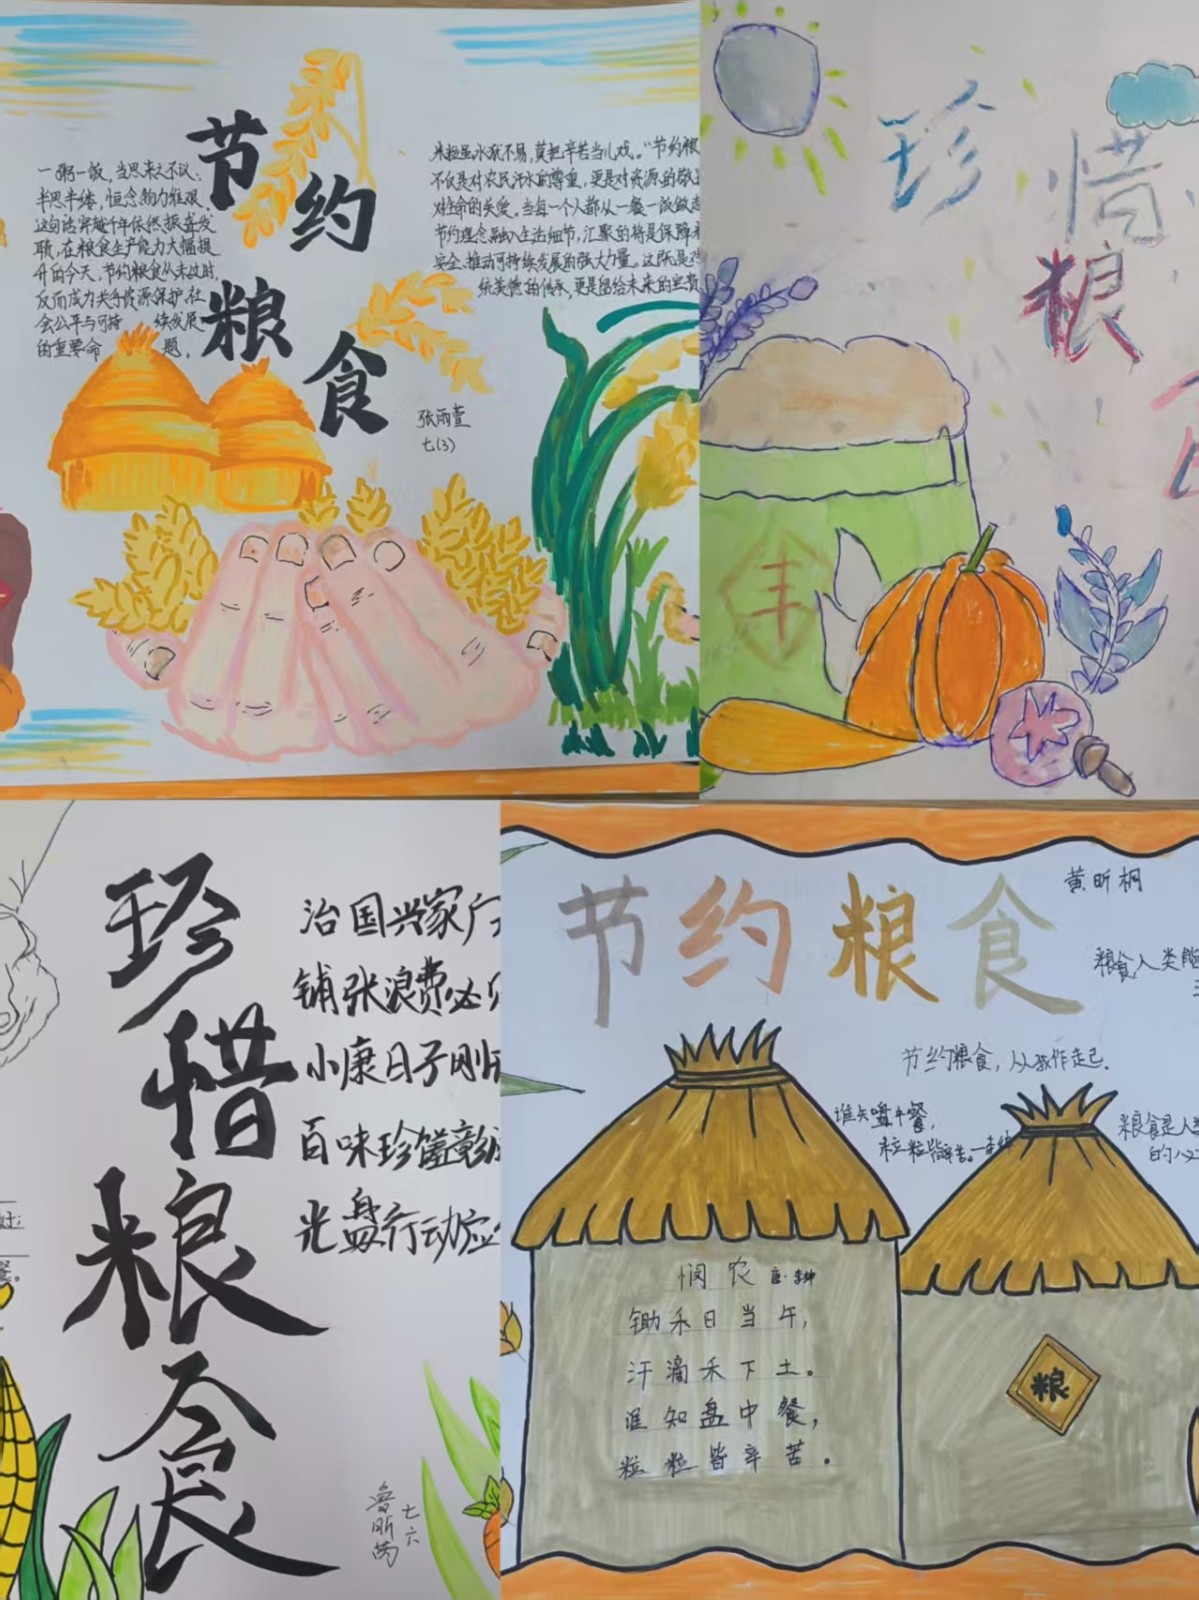 节约
粮食
一粥一饭，当思来之不议；
半思半缕，恒念物力维艰，
这句话穿越千年依然振聋发
聩，在粮食生产能力大幅提
升的今天，节约粮食从未过时，
反而成为关乎资源保护、社
会公平与可持 续发展
的重要命 题。
米粒虽小获不易，莫把辛苦当儿戏。“节约粮
不仅是对农民汗水的尊重，更是对资源的敬
对生命的关爱。当每一个人都从一餐一饭做
节约理念融入生活细节，汇聚的将是保障
安全、推动可持续发展的强大力量。这既是
统美德的传承，更是留给未来的
张雨萱
七(3)
珍惜
粮
丰
珍
惜
粮
食
治国兴家广
铺张浪费必
小康日子刚
百味珍馐彰
光盘行动应
鲁昕芮
七六
节约粮食
黄昕桐
粮食人类
节约粮食，从我作走起。
谁知盘中餐，
粒粒皆辛苦。
粮食是人类
的
悯农 唐·李绅
锄禾日当午，
汗滴禾下土。
谁知盘中餐，
粒粒皆辛苦。
粮